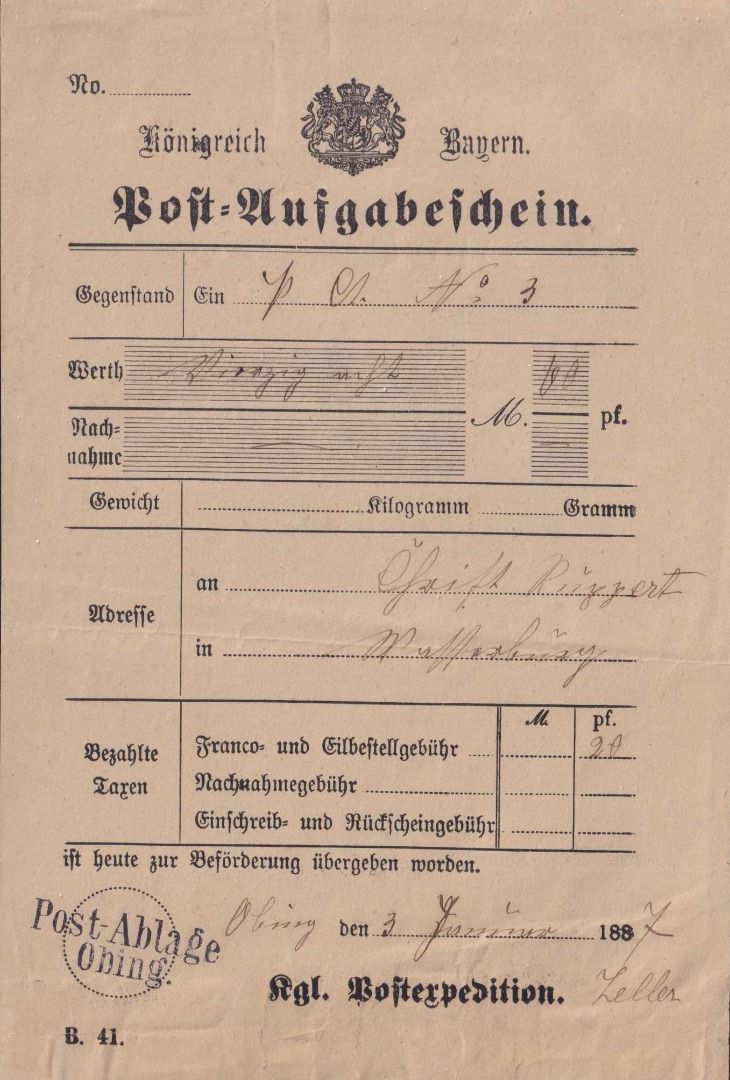 No.
Königreich Bayern.
Post-Aufgabeschein.
Gegenstand Ein P Ct. No. 3
Werth Vierzig acht M. 60 pf.
Nach-
nahme
Gewicht Kilogramm Gramm
Adresse
an Christ Ruppert
in Wasserburg
M. pf.
Bezahlte
Taxen
Franco- und Eilbestellgebühr 20
Nachnahmegebühr
Einschreib- und Rückscheingebühr
ist heute zur Beförderung übergeben worden.
Post-Ablage
Obing.
Obing den 3 Januar 1887
Kgl. Postexpedition. Zeller
B. 41.